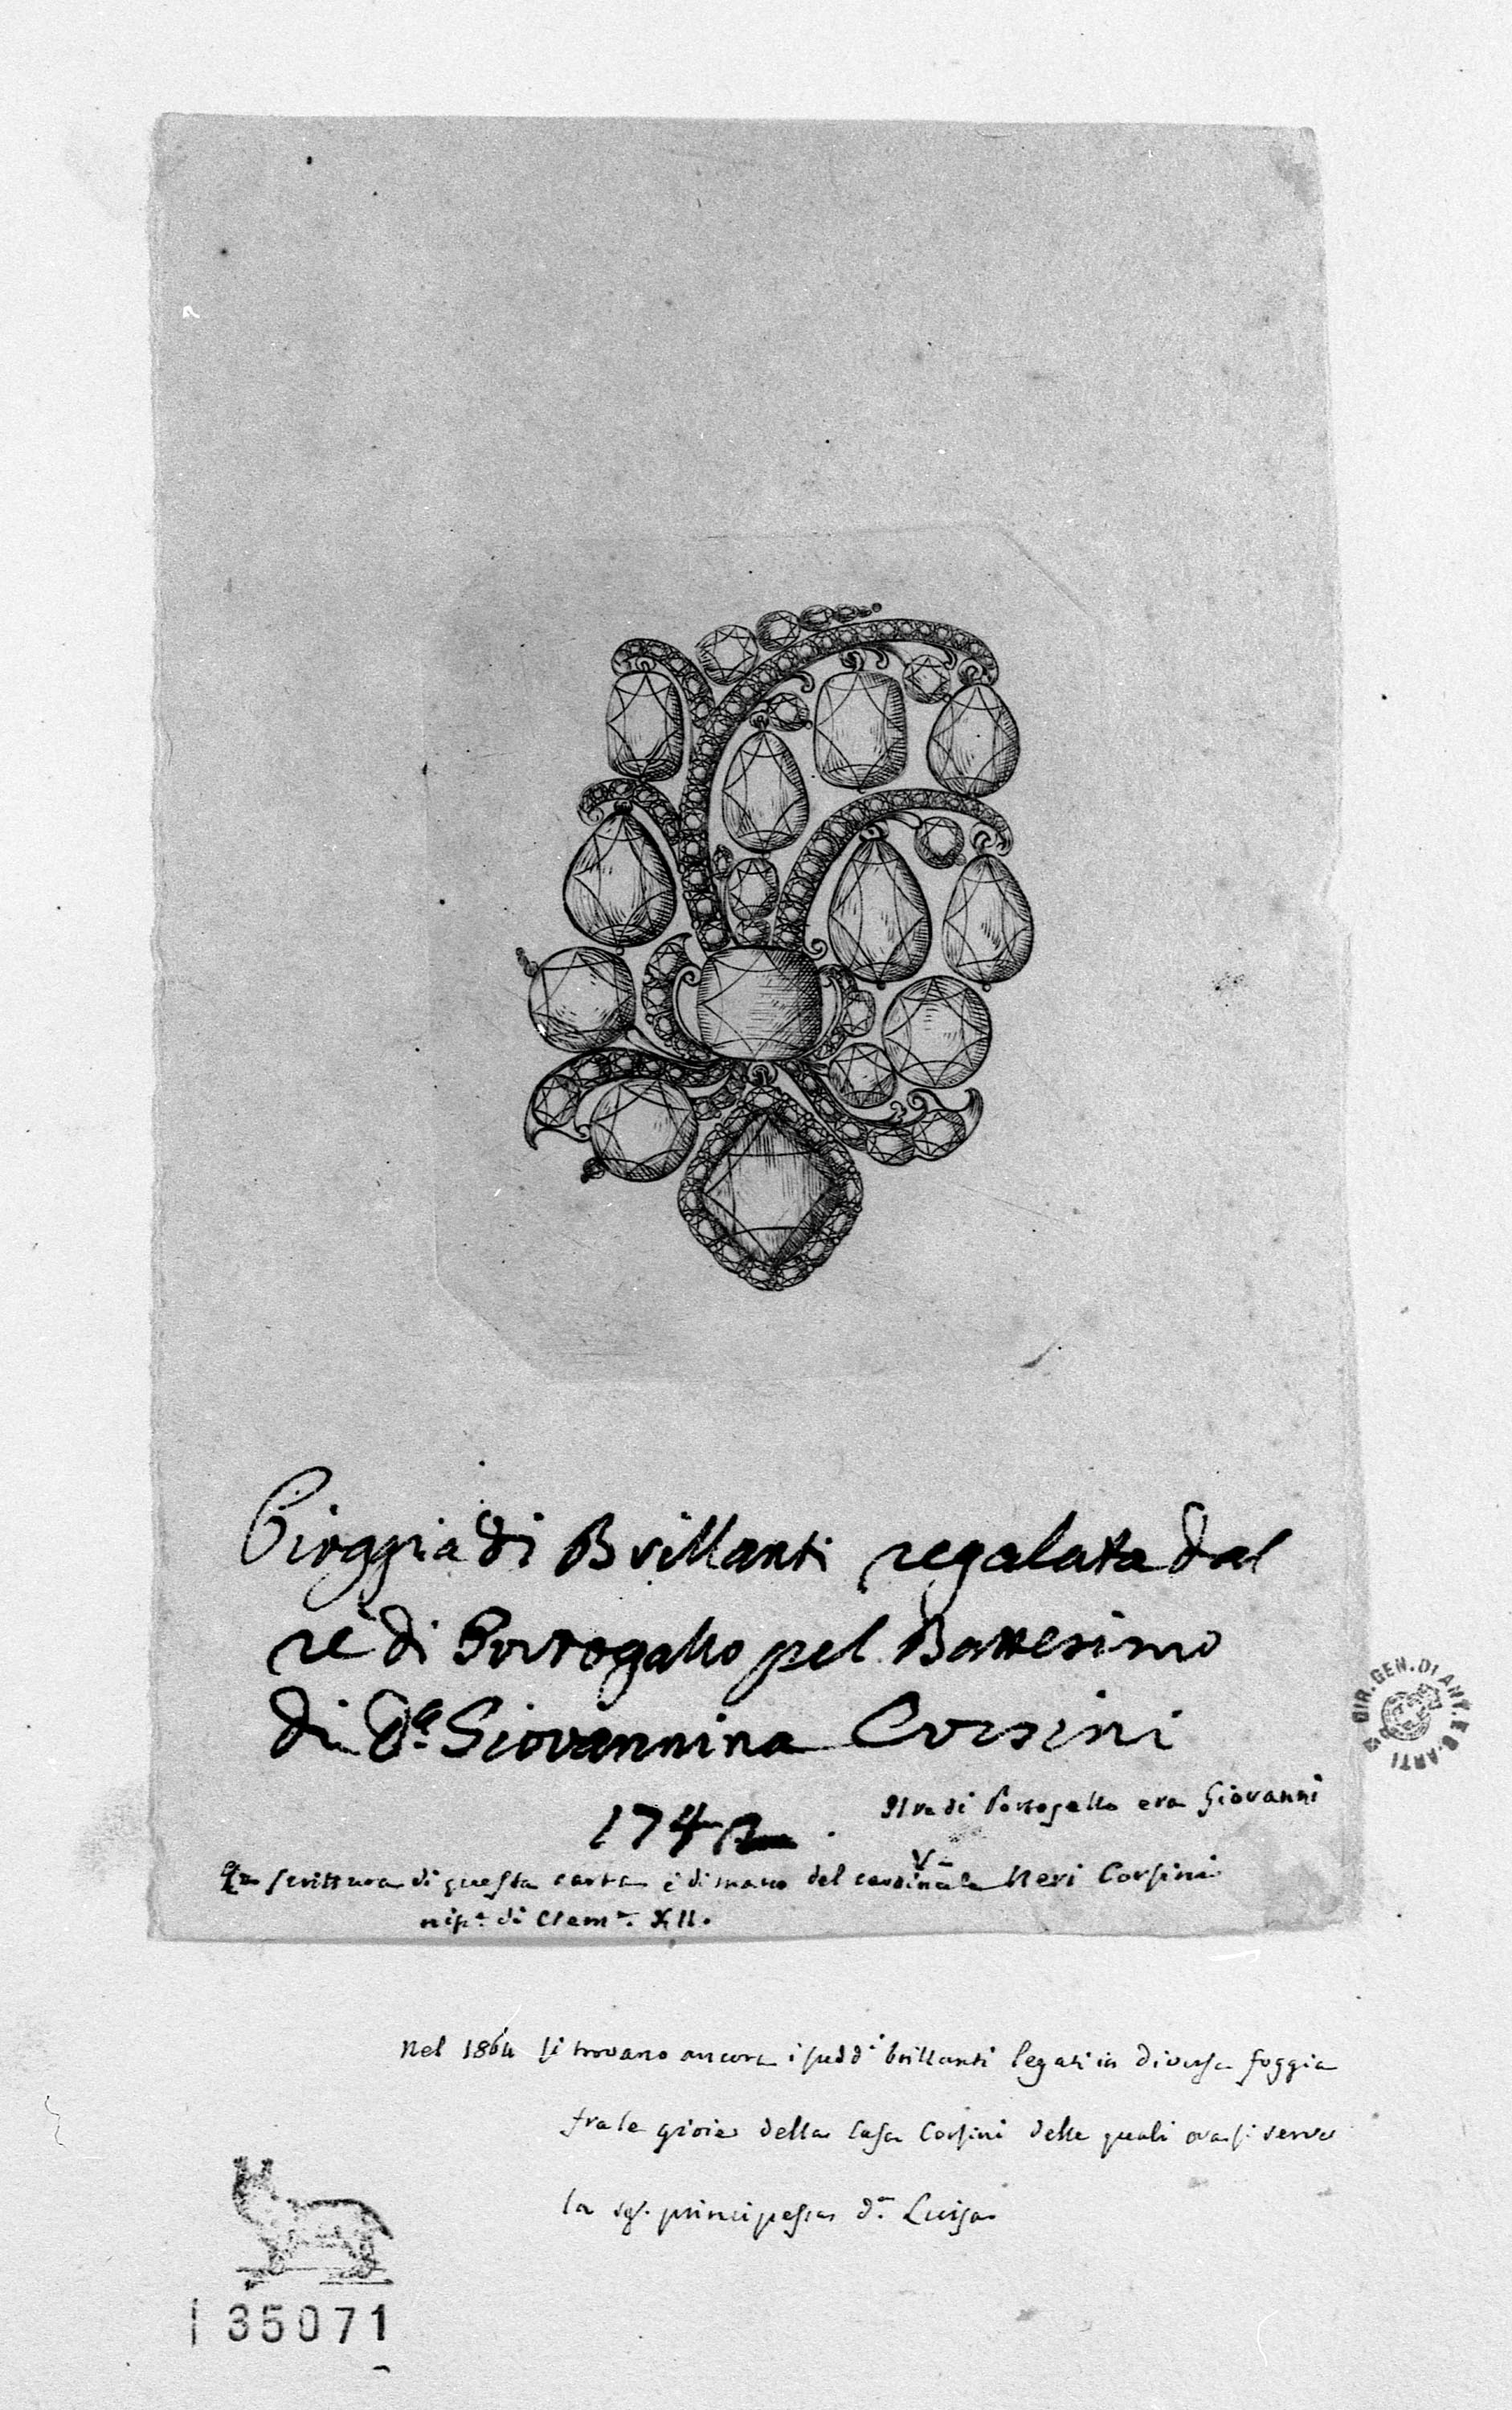 Gioggia di Brillanti regalata dal
rè di Portogallo pel Battesimo
di Dª Giovannina Corsini
1742.
Il re di Portogallo era Giovanni
V
scrittura di questa carta è di mano del cardinale Neri Corsini
nipᵉ di Clemᵗᵉ XII.
Nel 1864 si trovano ancora i suddⁱ brillanti legati in diversa foggia
fra le gioie della Casa Corsini delle quali ora si serve
la sigʳ principessa Dª Luisa
DIR. GEN. DI ANT. E B. ARTI
135071